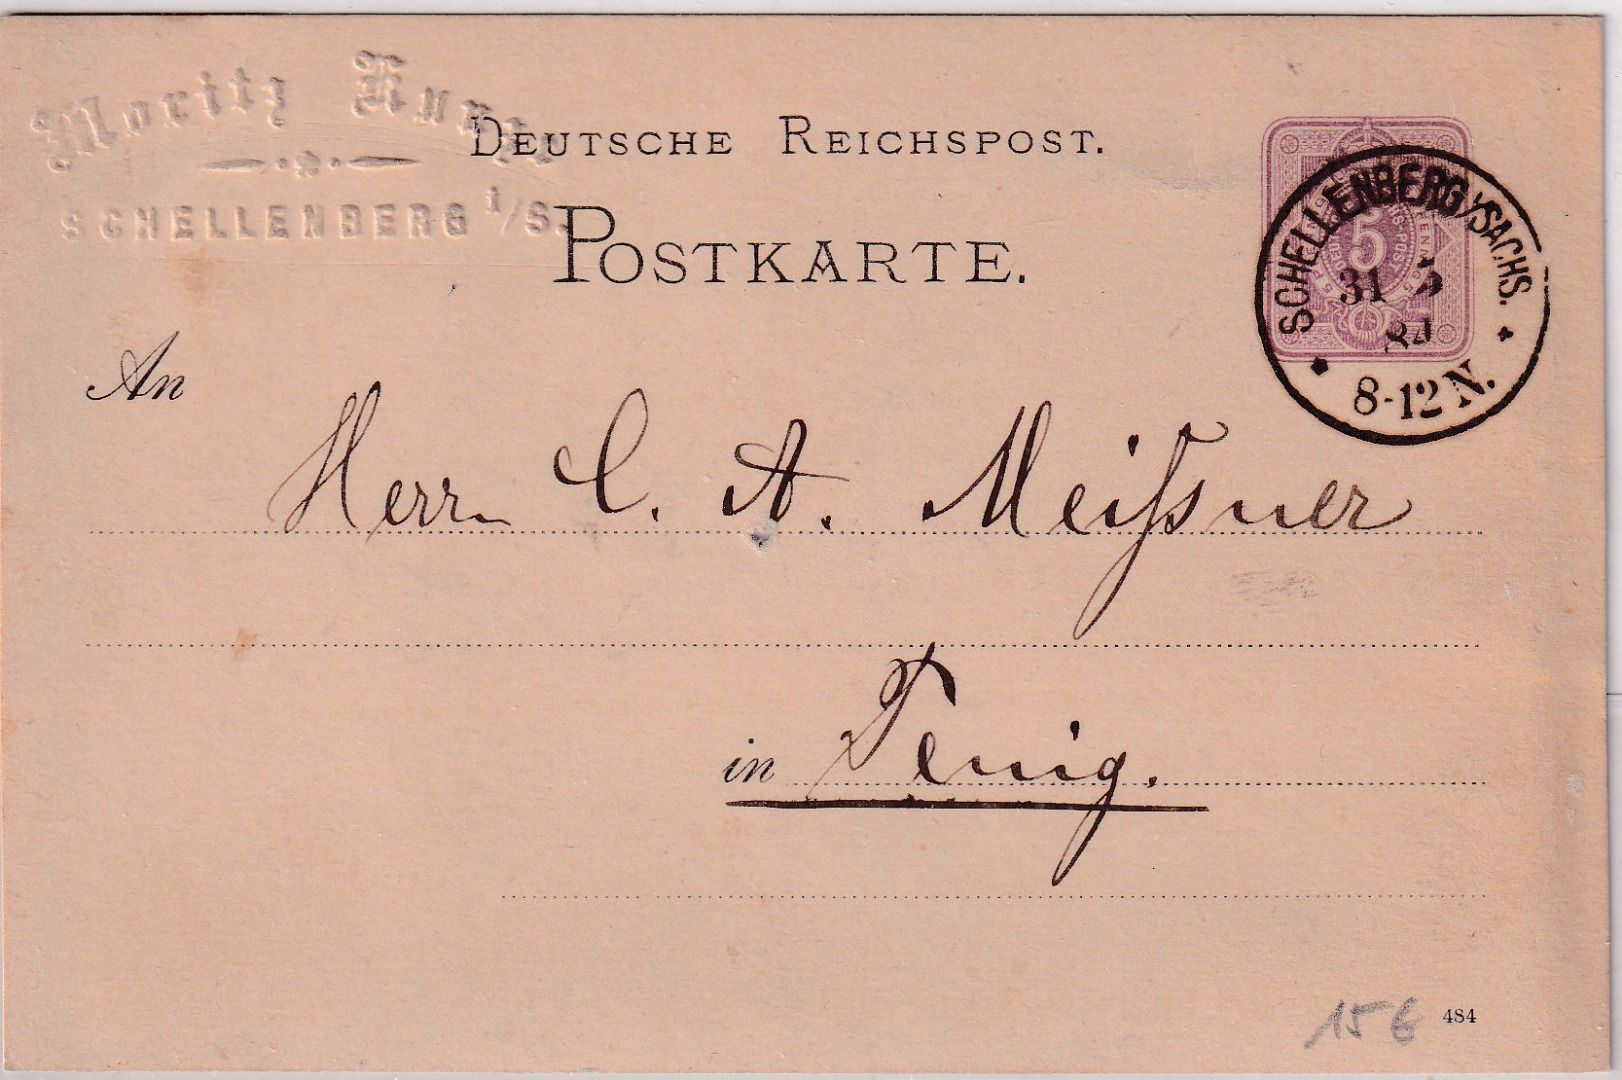 Moritz
SCHELLENBERG i/S.
DEUTSCHE REICHSPOST.
POSTKARTE.
5
SCHELLENBERG i/SACHS.
31
84
8-12 N.
An
Herrn C. A. Meißner
in Penig.
15 €
484